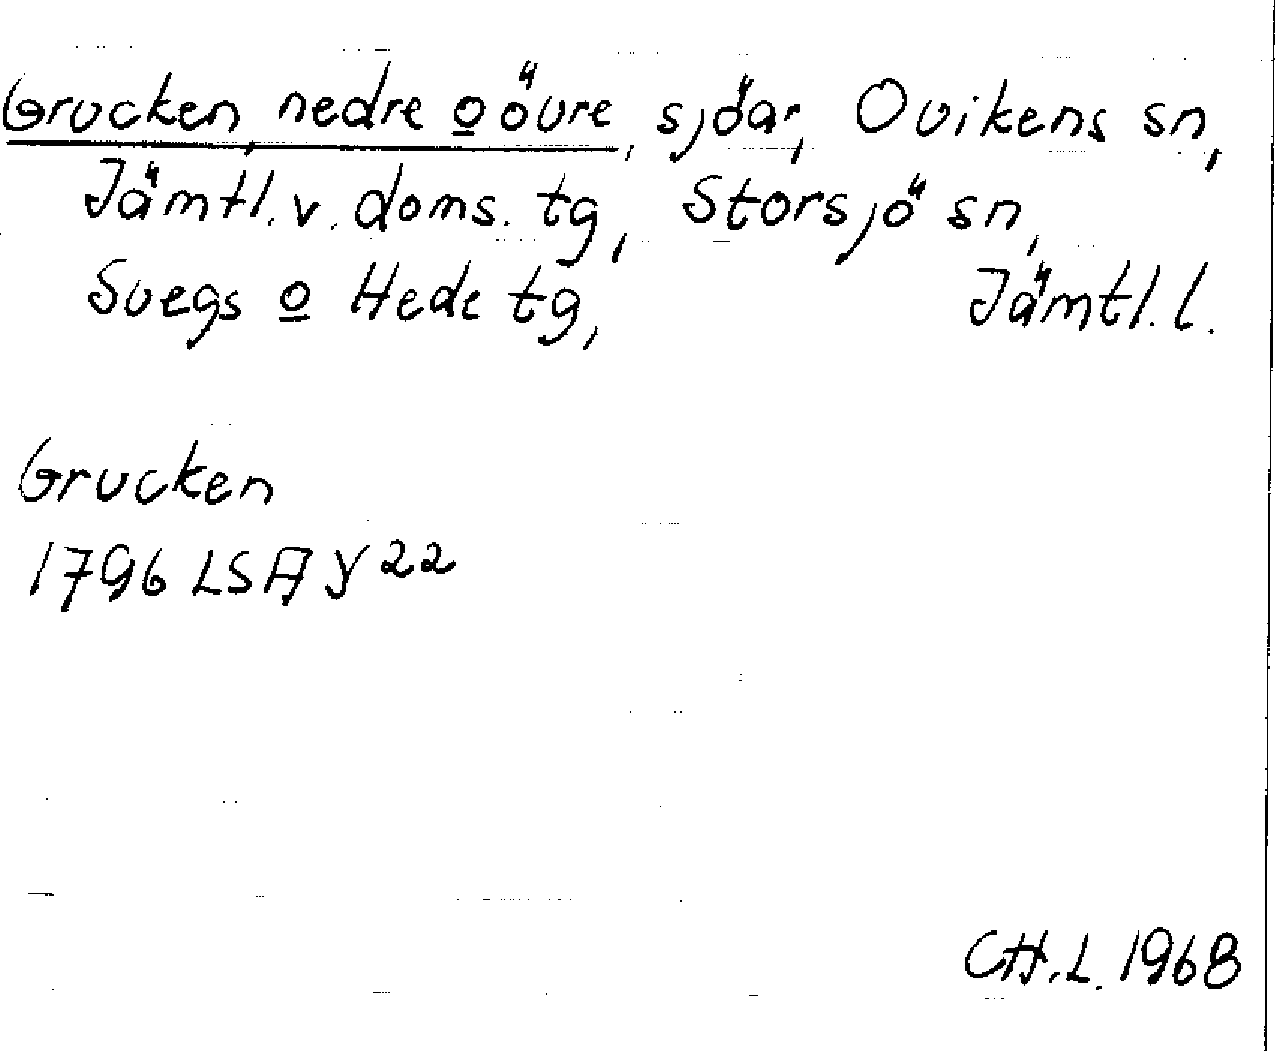 Grucken, nedre o övre, sjöar, Ovikens sn,
Jämtl. v. doms. tg, Storsjö sn,
Svegs o Hede tg, Jämtl. l.
Grucken
1796 LSA Y 22
CH.L. 1968